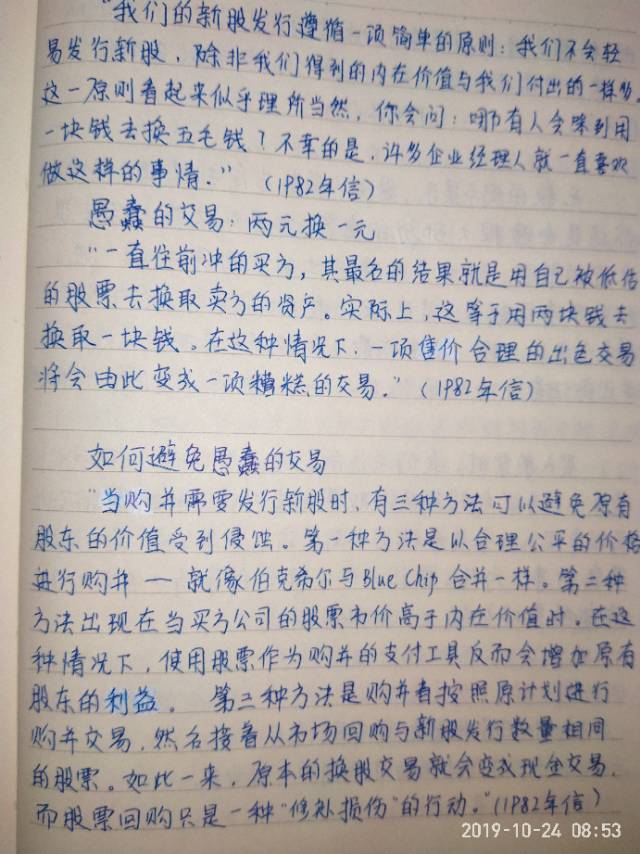 “我们的新股发行遵循一项简单的原则：我们不会轻
易发行新股，除非我们得到的内在价值与我们付出的一样多。
这一原则看起来似乎理所当然，你会问：哪有人会笨到用
一块钱去换五毛钱？不幸的是，许多企业经理人就一直喜欢
做这样的事情。”（1982年信）
愚蠢的交易：两元换一元
“一直往前冲的买方，其最后的结果就是用自己被低估
的股票去换取卖方的资产。实际上，这等于用两块钱去
换取一块钱。在这种情况下，一项售价合理的出色交易
将会由此变成一项糟糕的交易。”（1982年信）
如何避免愚蠢的交易
“当购并需要发行新股时，有三种方法可以避免原有
股东的价值受到侵蚀。第一种方法是以合理公平的价格
进行购并——就像伯克希尔与Blue Chip合并一样。第二种
方法出现在当买方公司的股票市价高于内在价值时。在这
种情况下，使用股票作为购并的支付工具反而会增加原有
股东的利益。第三种方法是购并者按照原计划进行
购并交易，然后接着从市场回购与新股发行数量相同
的股票。如此一来，原本的换股交易就会变成现金交易，
而股票回购只是一种“修补损伤”的行动。”（1982年信）
2019-10-24 08:53